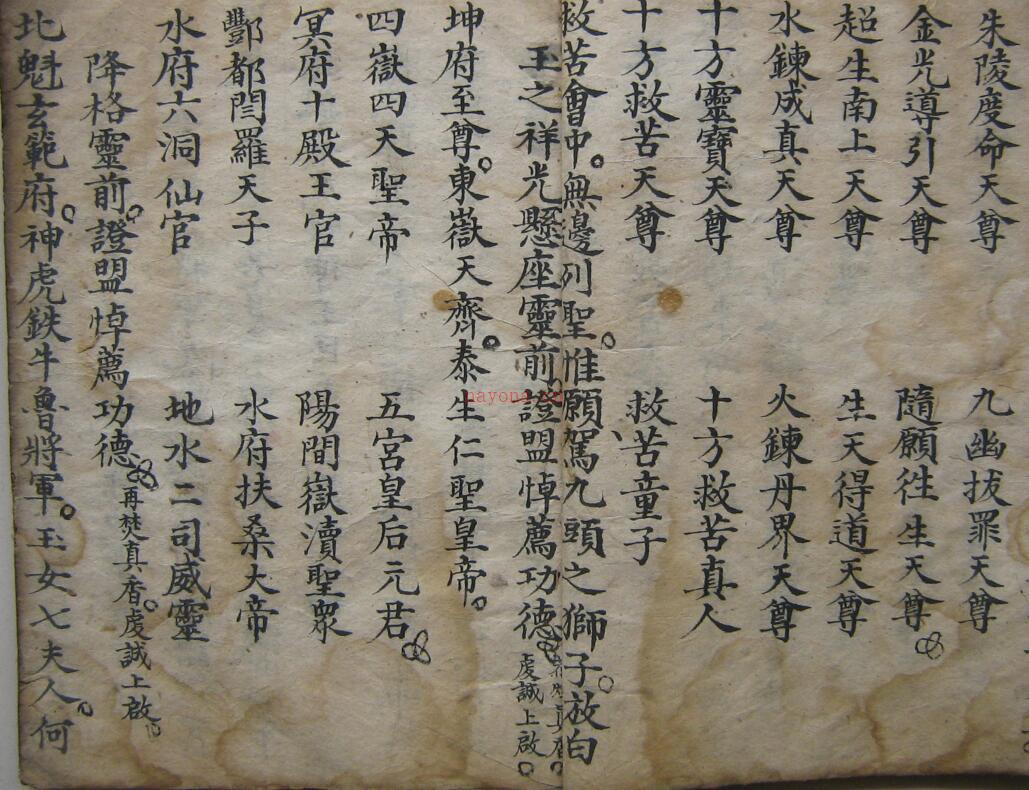 朱陵度命天尊　九幽拔罪天尊
金光導引天尊　隨願徃生天尊
超生南上天尊　生天得道天尊
水鍊成真天尊　火鍊丹界天尊
十方靈寶天尊　十方救苦真人
十方救苦天尊　救苦童子
救苦會中。無邊列聖。惟願駕九頭之獅子。放白
玉之祥光。懸座靈前。證盟悼薦功德
真香。虔誠上啟。
坤府至尊。東嶽天齊。泰生仁聖皇帝。
四嶽四天聖帝　五宮皇后元君
冥府十殿王官　陽間嶽瀆聖衆
酆都閆羅天子　水府扶桑大帝
水府六洞仙官　地水二司威靈
降格靈前。證盟悼薦功德 再焚真香。虔誠上啟
北魁玄範府。神虎鉄牛魯將軍。玉女七夫人。何